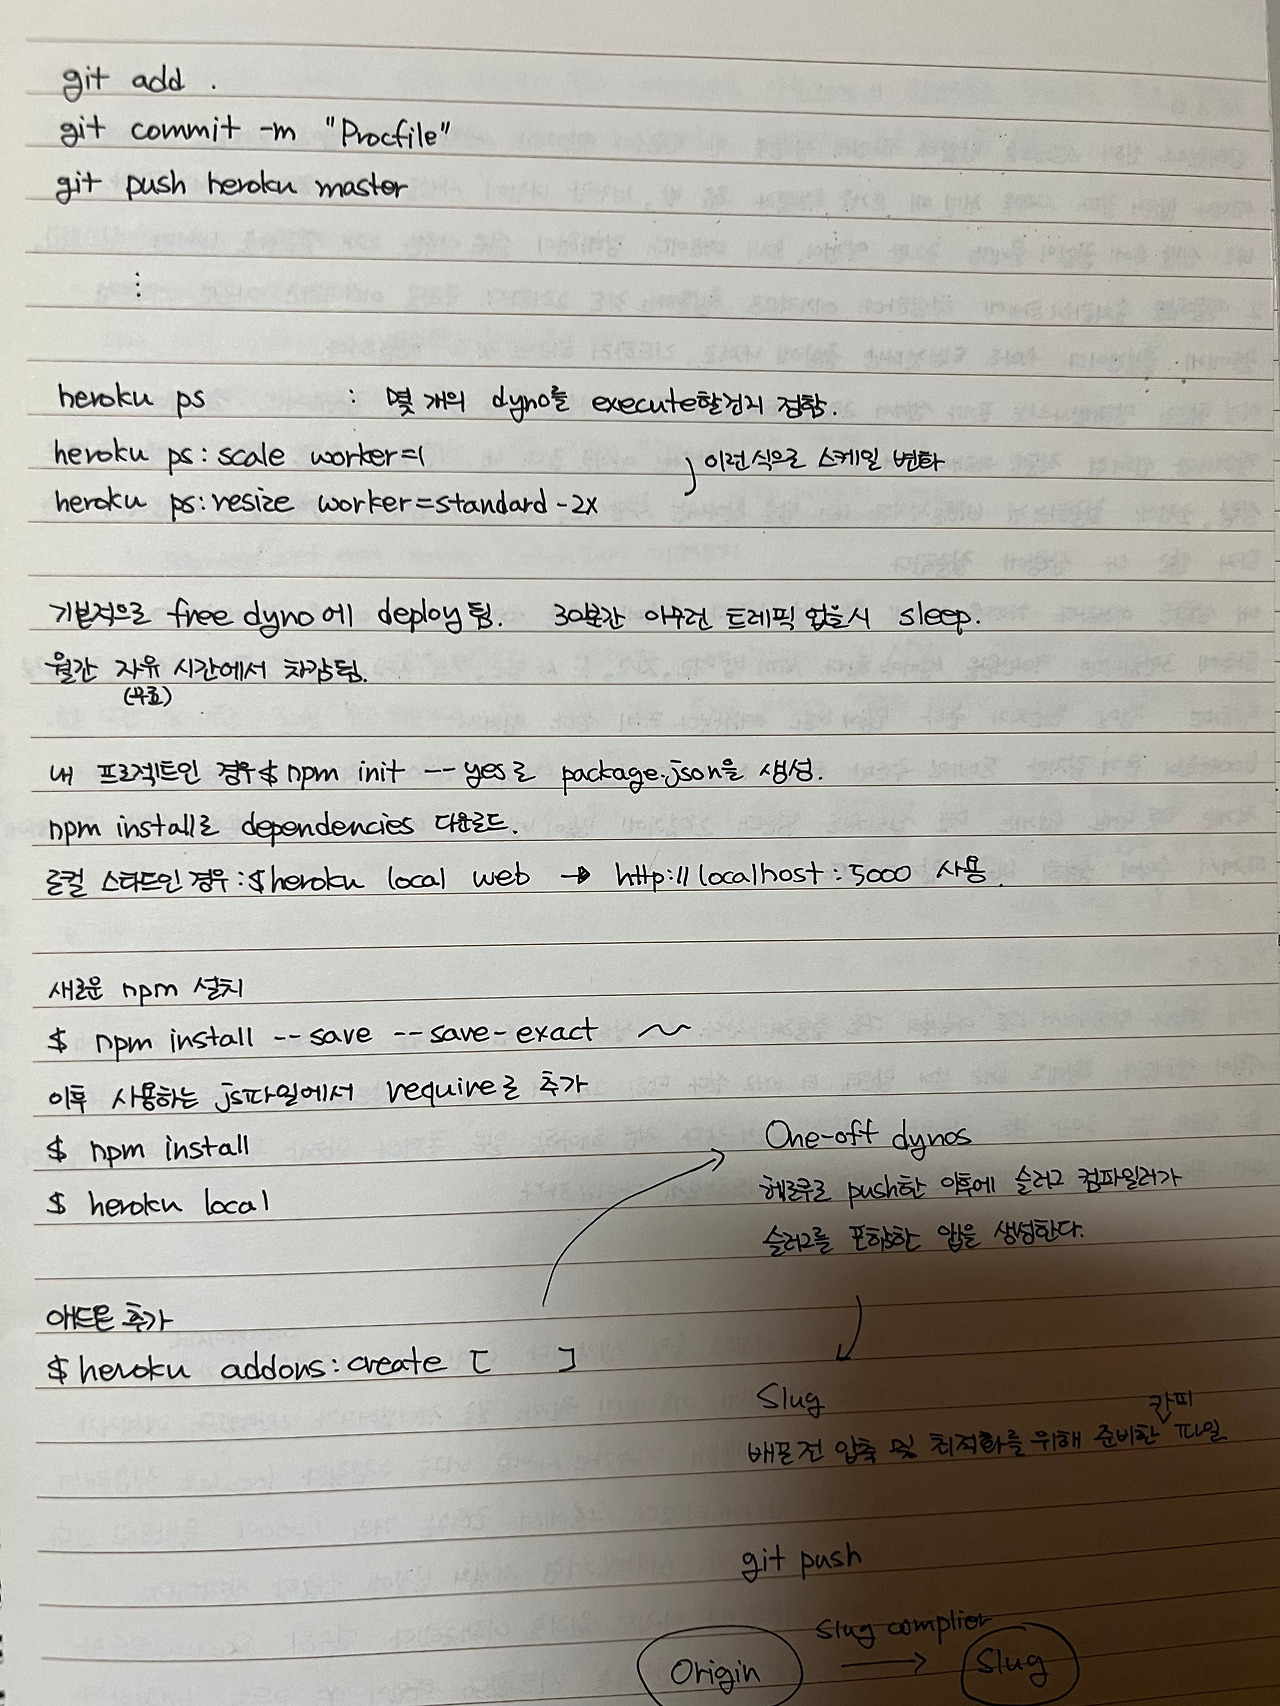 git add .
git commit -m "Procfile"
git push heroku master
⋮
heroku ps : 몇 개의 dyno를 execute할건지 정함.
heroku ps:scale worker=1
이런 식으로 스케일 변화
heroku ps:resize worker=standard-2x
기본적으로 free dyno에 deploy됨. 30분간 아무런 트레픽 없을시 sleep.
월간 자유 시간에서 차감됨.
(무료)
내 프로젝트인 경우 $ npm init --yes로 package.json을 생성.
npm install로 dependencies 다운로드.
로컬 스타트인 경우 : $ heroku local web → http://localhost:5000 사용.
새로운 npm 설치
$ npm install --save --save-exact ~
이후 사용하는 js파일에서 require로 추가
$ npm install
$ heroku local
One-off dynos
헤로쿠로 push한 이후에 슬러그 컴파일러가
슬러그를 포함한 앱을 생성한다.
애드온 추가
$ heroku addons:create [ ]
Slug
칸피
배포전 압축 및 최적화를 위해 준비한 파일
git push
slug complier
Origin → Slug